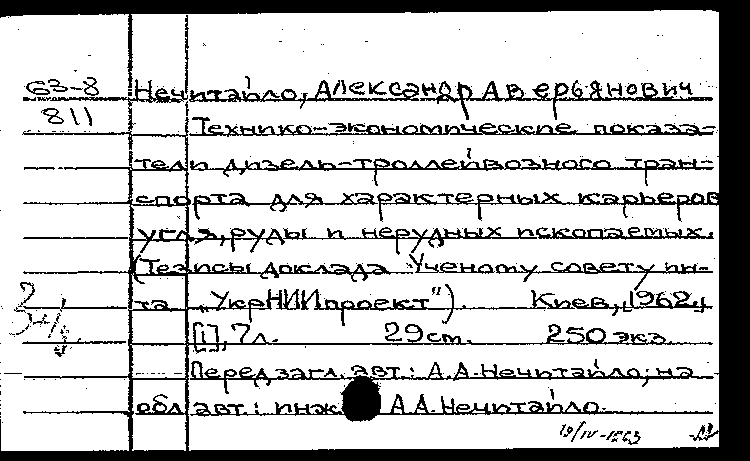 63-8 Нечитайло, Александр Аверьянович
811 Технико-экономические показа-
тели дизель-троллейвозного тран-
спорта для характерных карьеров
угля, руды и нерудных ископаемых.
(Тезисы доклада Ученому совету ин-
та „УкрНИИпроект"). Киев, 1962.
[1], 7 л. 29 см. 250 экз.
Перед загл. авт.: А.А. Нечитайло; на
обл авт.: инж А.А. Нечитайло.
19/IV-1963